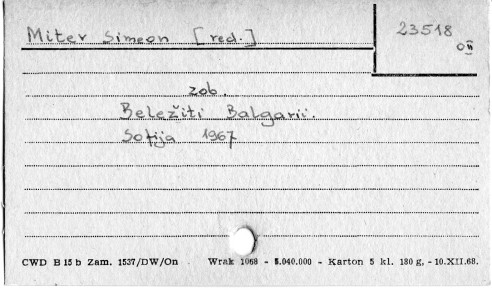 Miter Simeon [red.]
23518
OII
zob.
Beležiti Balgarii.
Sofija 1967
CWD B 15 b Zam. 1537/DW/On Wrak 1068 - 5.040.000 - Karton 5 kl. 180 g, - 10.XII.68.